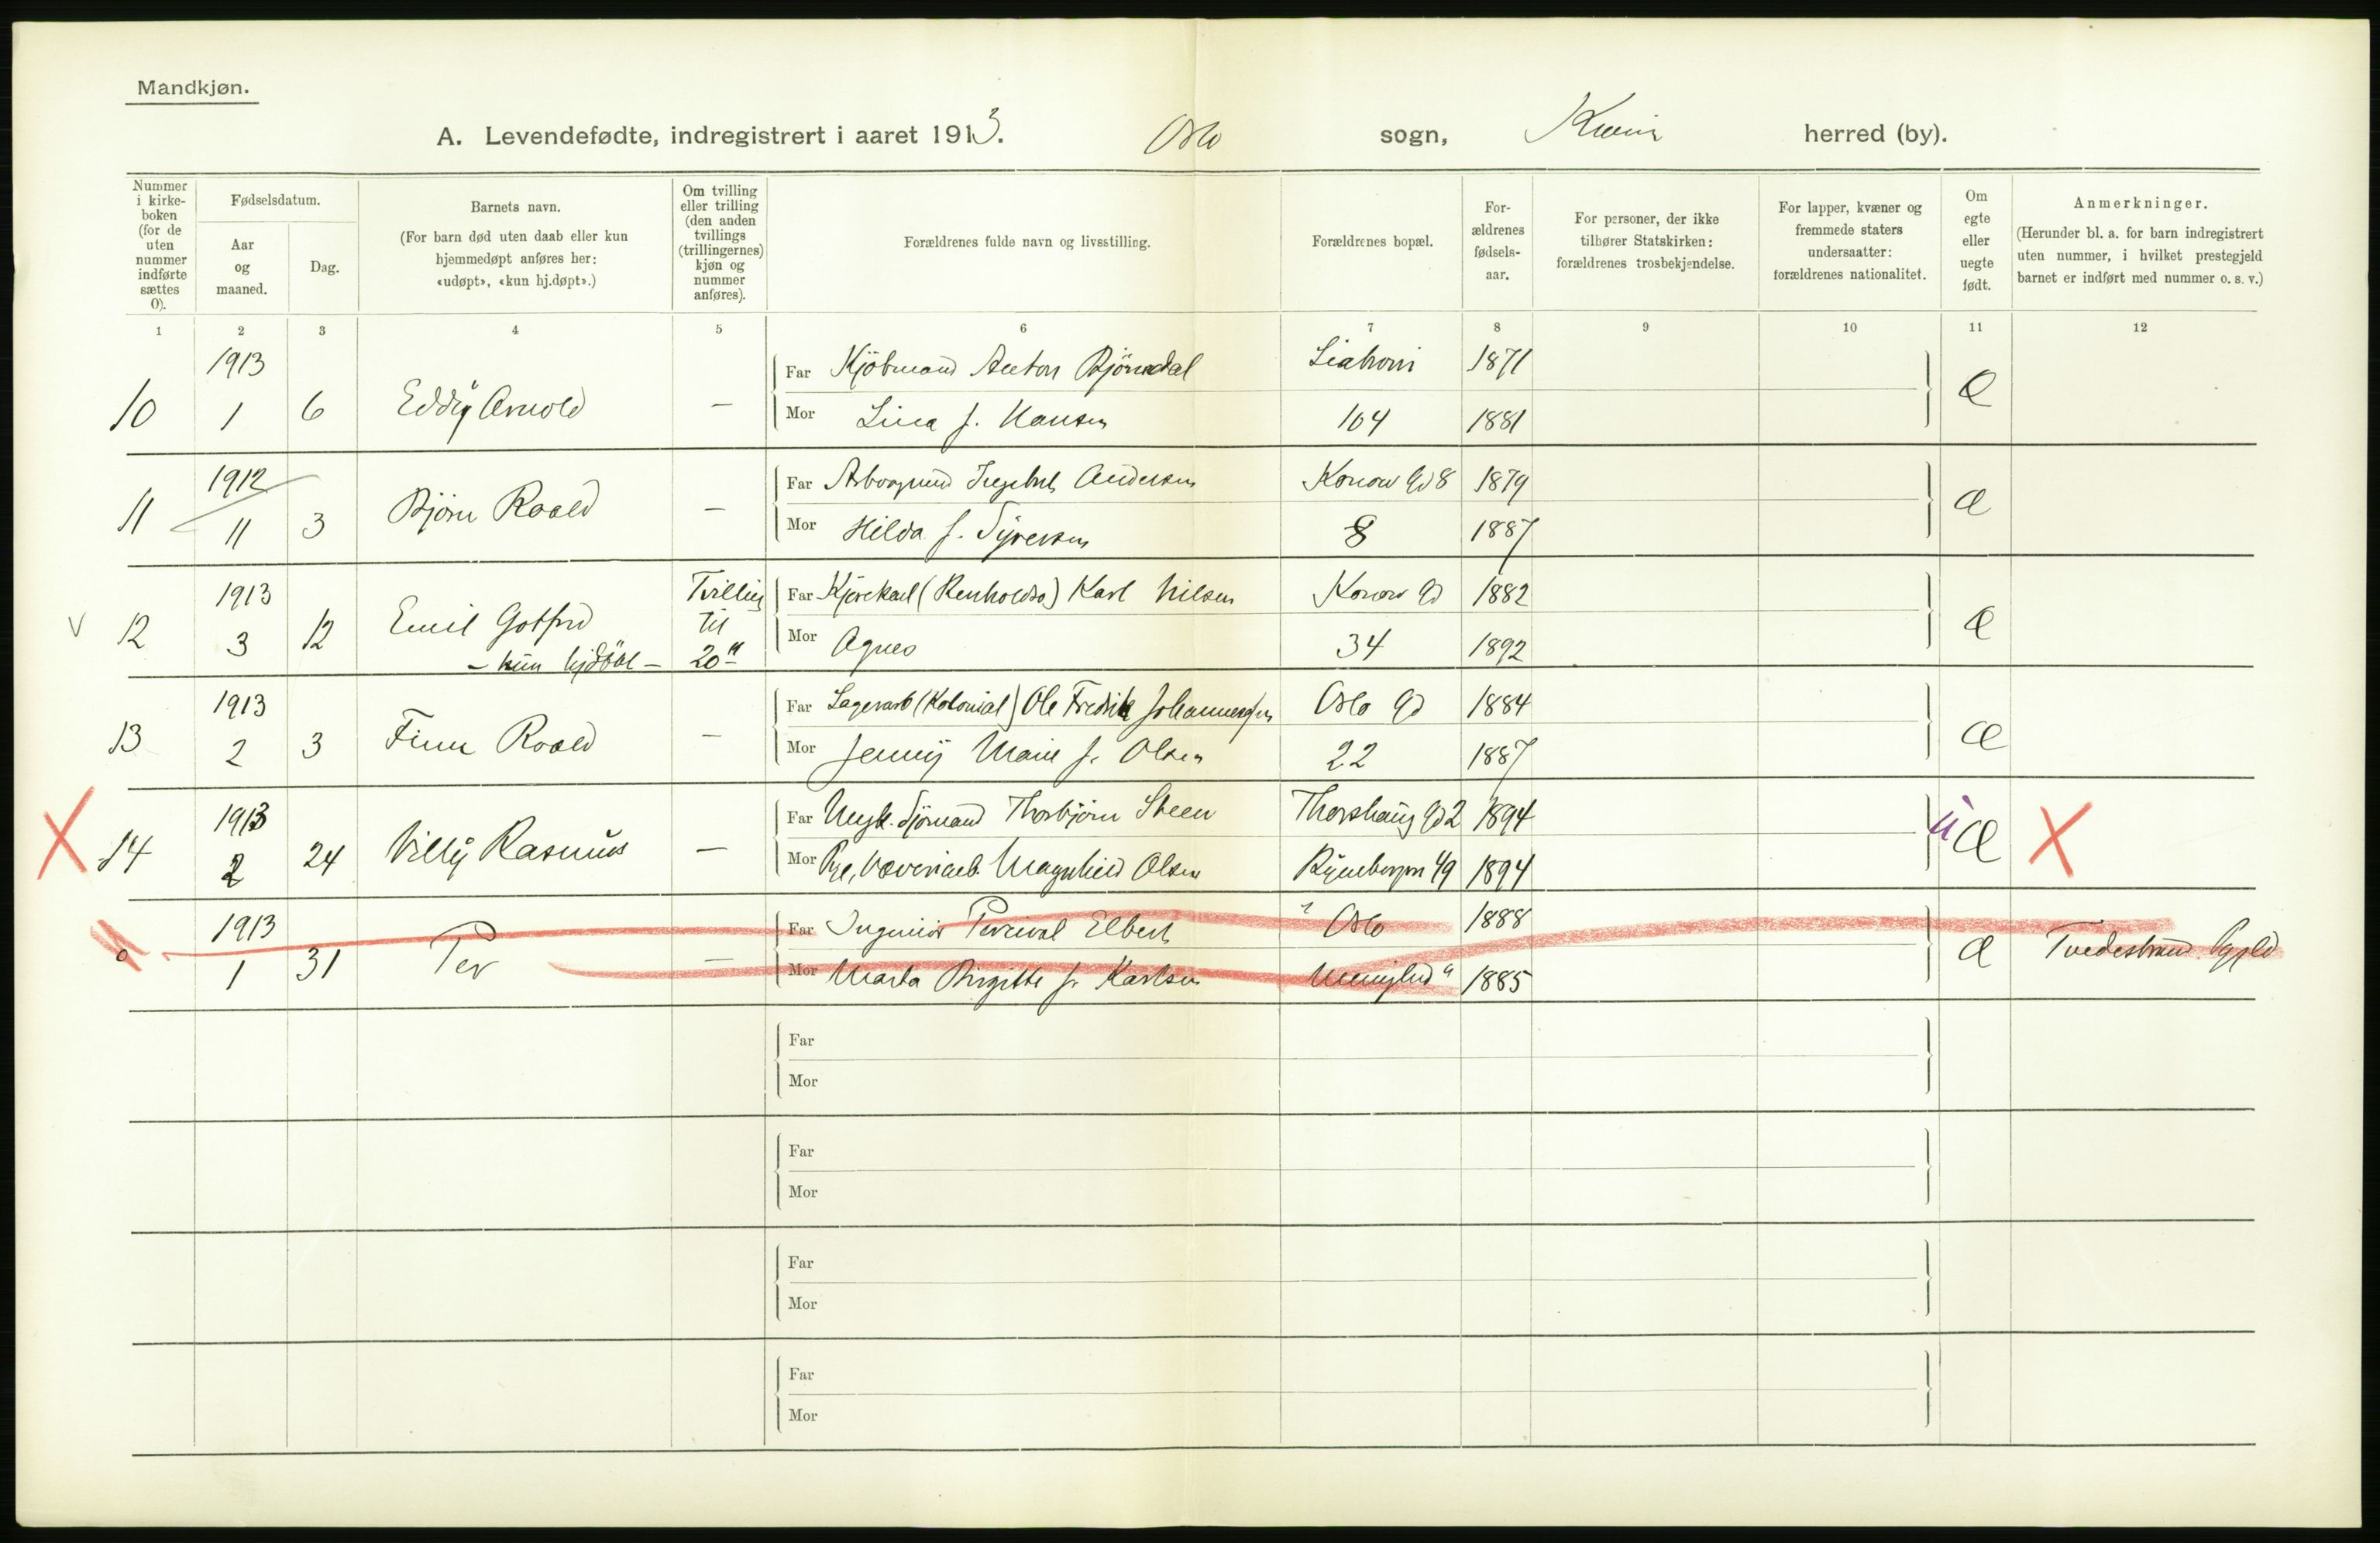 Mandkjøn.
A. Levendefødte, indregistrert i aaret 1913. Oslo sogn, Kr.ania herred (by).
Nummer i kirke- boken (for de uten nummer indførte sættes 0).
Fødselsdatum.
Aar og maaned.
Dag.
Barnets navn.
(For barn død uten daab eller kun hjemmedøpt anføres her: «udøpt», «kun hj.døpt».)
Om tvilling eller trilling (den anden tvillings (trillingernes) kjøn og nummer anføres).
Forældrenes fulde navn og livsstilling.
Forældrenes bopæl.
For- ældrenes fødsels- aar.
For personer, der ikke tilhører Statskirken: forældrenes trosbekjendelse.
For lapper, kvæner og fremmede staters undersaatter: forældrenes nationalitet.
Om egte eller uegte født.
Anmerkninger.
(Herunder bl. a. for barn indregistrert uten nummer, i hvilket prestegjeld barnet er indført med nummer o. s. v.)
1 2 3 4 5 6 7 8 9 10 11 12
1913 Far Kjöbmand Anton Björndal 1871
10 1 6 Eddy Arnold — Mor Lina f. Hansen 104 1881 Æ
1912 Far Ingebret Andersen Konow Gd 8 1879
11 11 3 Bjørn Roald — Mor Hilda f. Syversen 8 1887 Æ
1913 Tvilling Far (Renholds) Karl Nilsen Konow Gd 1882
V 12 3 12 Emil Gotfred til Mor Agnes 34 1892 Æ
— kun hjdöbt — 20"
1913 Far Lagerarb (Kolonial) Ole Fredrik Johannessen Oslo Gd 1884
13 2 3 Finn Roald — Mor Jenny Marie f. Olsen 22 1887 Æ
1913 Far Ungk. Sjömand Thorbjørn Steen Thorshaug Gd 2 1894
X 14 2 24 Villy Rasmus — Mor Pige, Væveriarb. Magnhild Olsen Ryenbergvn 49 1894 uÆ X
1913 Far Ingeniör Percival Elbert Oslo 1888
0 1 31 Per — Mor Marta Birgitte f. Karlsen 1885 Æ Tvedestrand Pgjld
Far
Mor
Far
Mor
Far
Mor
Far
Mor